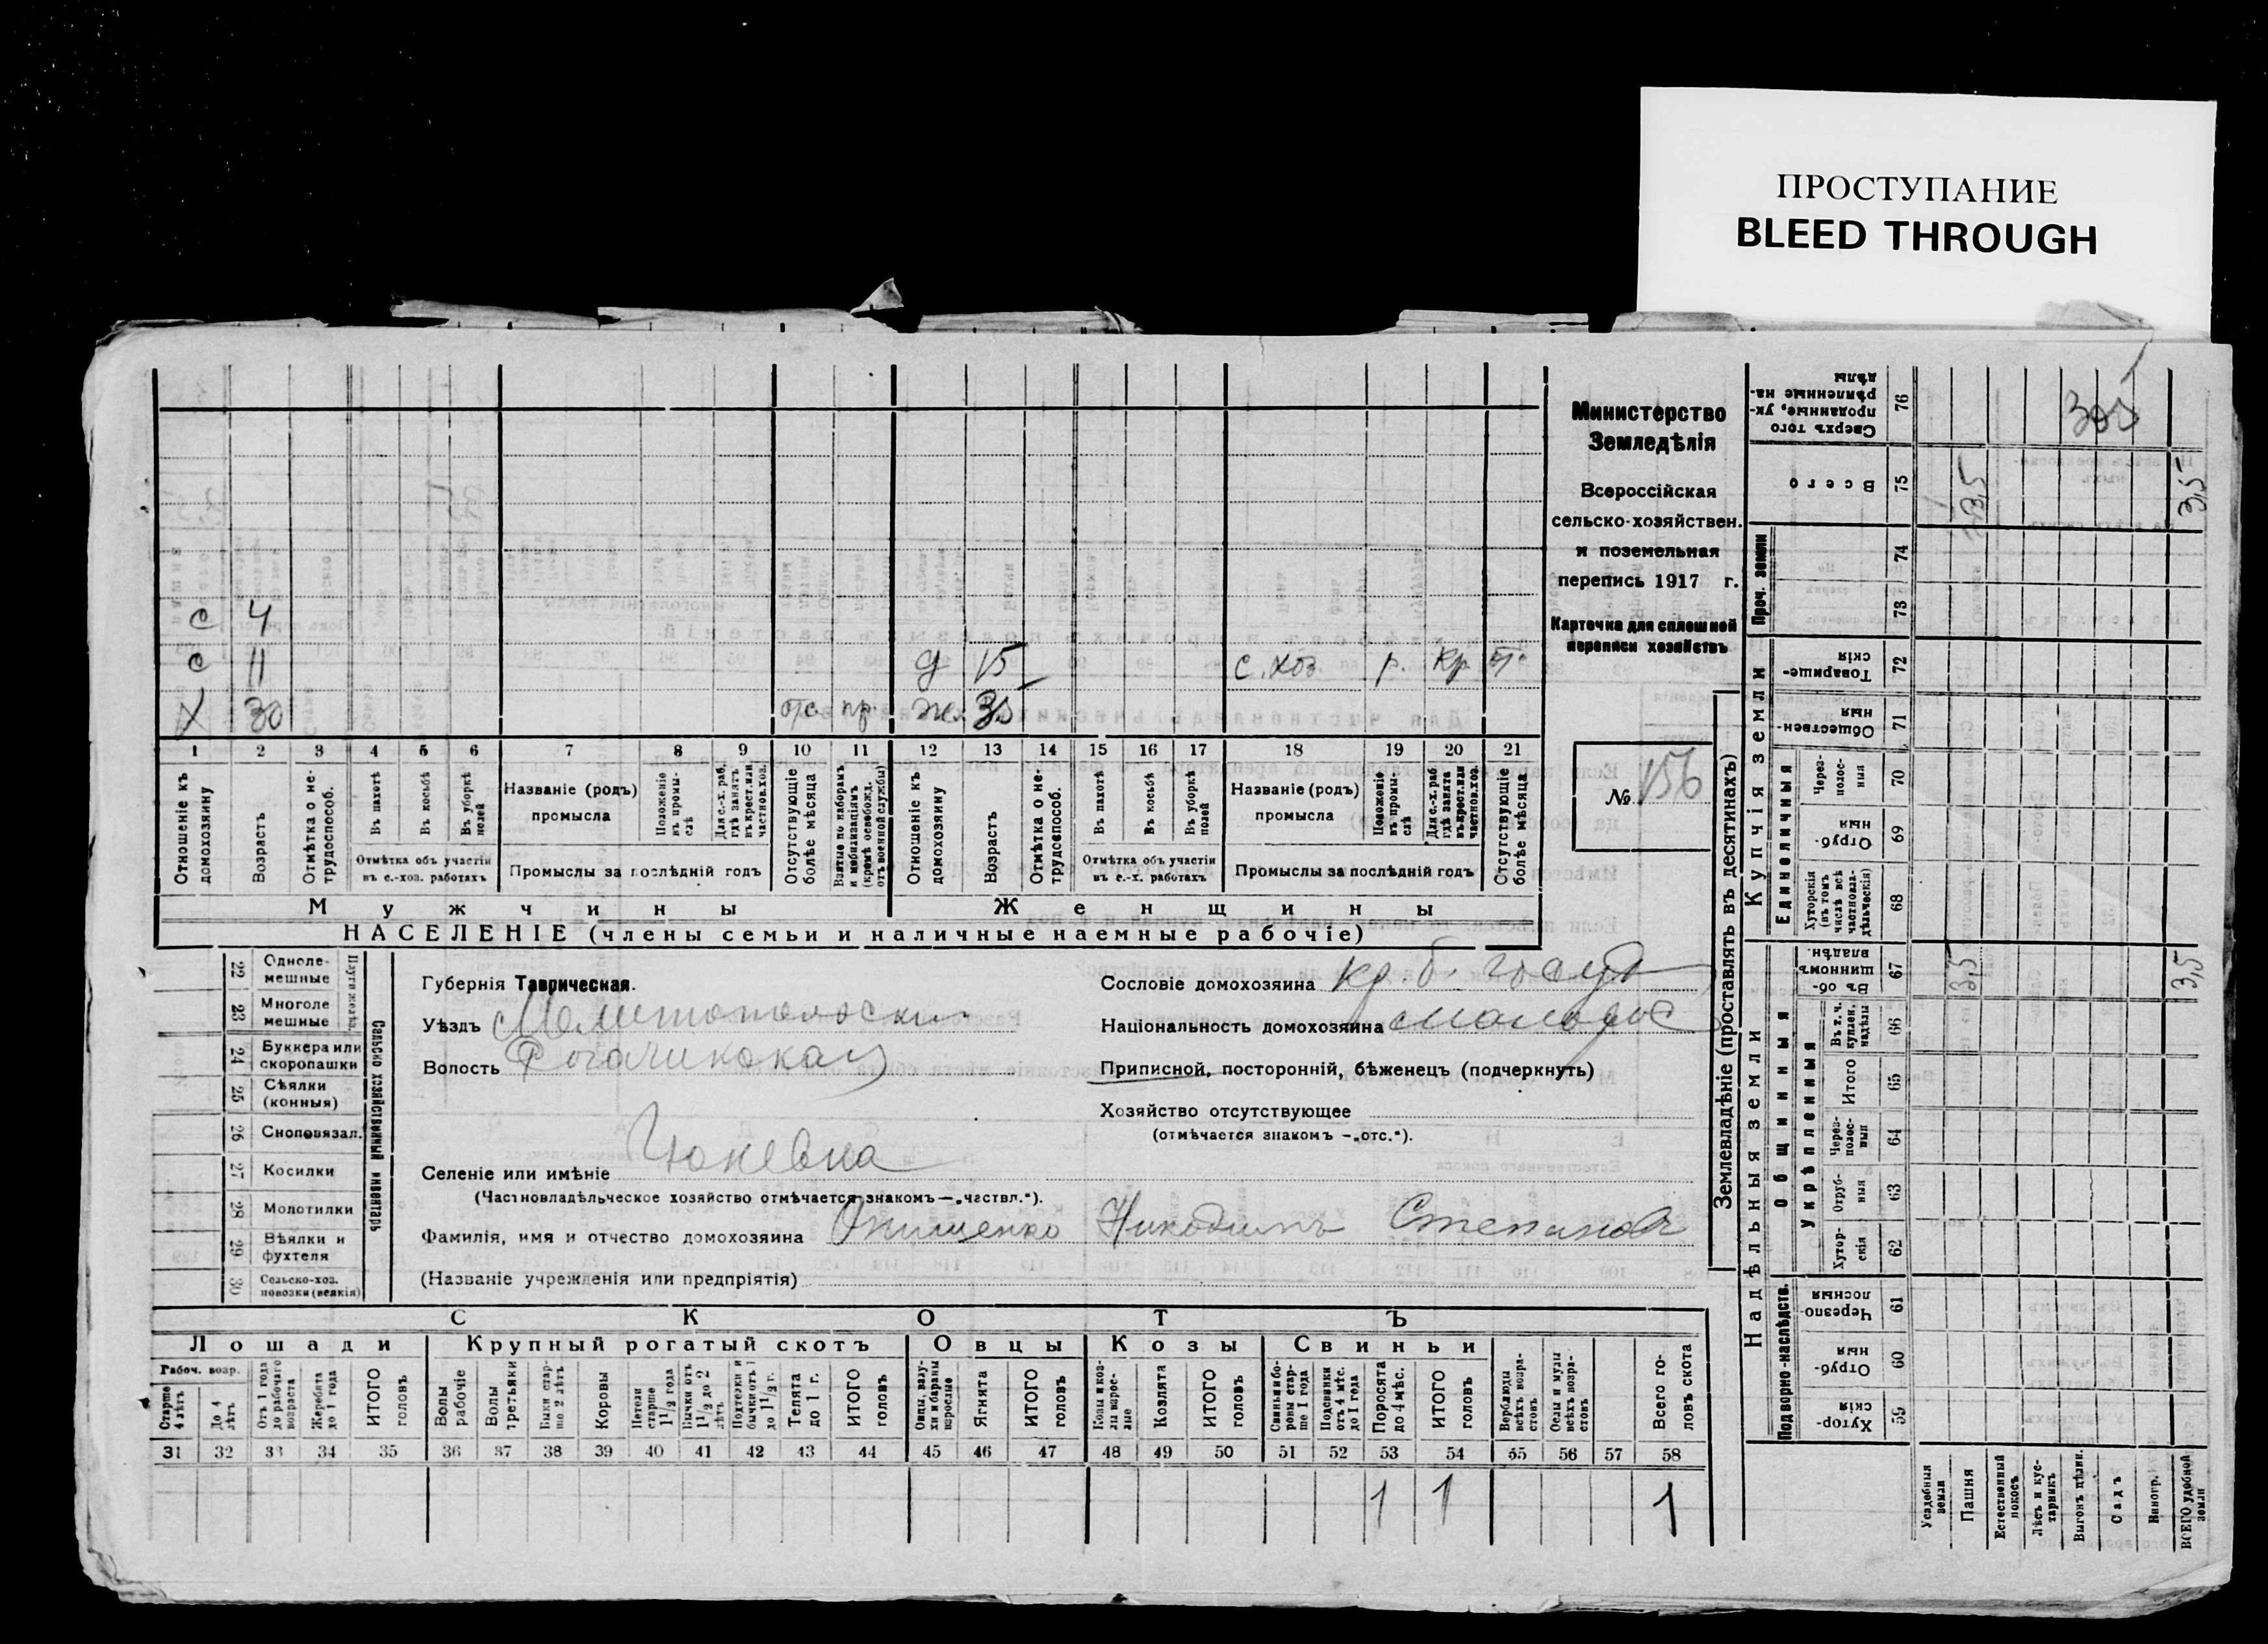 ПРОСТУПАНИЕ
BLEED THROUGH
с 4
с 11 д 15 с. хоз р. кр от.
Х 30 отс пр. ж. 35
1 2 3 4 5 6 7 8 9 10 11 12 13 14 15 16 17 18 19 20 21
Отношеніе къ домохозяину
Возрастъ
Отмѣтка о не-трудоспособ.
Въ пахотѣ
Въ косьбѣ
Въ уборкѣ полей
Отмѣтка объ участіи въ с.-хоз. работахъ
Названіе (родъ) промысла
Положеніе въ промы-слѣ
Для с.-х. раб. гдѣ занятъ въ крест. или частнов. хоз.
Промыслы за послѣдній годъ
Отсутствующіе болѣе мѣсяца
Взятые по наборамъ и мобилизаціямъ (кромѣ освобожд. отъ военной службы)
Отношеніе къ домохозяину
Возрастъ
Отмѣтка о не-трудоспособ.
Въ пахотѣ
Въ косьбѣ
Въ уборкѣ полей
Отмѣтка объ участіи въ с.-х. работахъ
Названіе (родъ) промысла
Положеніе въ промы-слѣ
Для с.-х. раб гдѣ занята въ крест. или частнов. хоз.
Промыслы за послѣдній годъ
Отсутствующіе болѣе мѣсяца
Мужчины Женщины
НАСЕЛЕНІЕ (члены семьи и наличные наемные рабочіе)
Министерство
Земледѣлія
Всероссійская
сельско-хозяйствен.
и поземельная
перепись 1917 г.
Карточка для сплошной
переписи хозяйствъ
№ 156
22 Однолемешные
23 Многоле мешные
24 Буккера или скоропашки
25 Сѣялки (конныя)
26 Сноповязал.
27 Косилки
28 Молотилки
29 Вѣялки и фухтеля
30 Сельско-хоз. повозки (всякія)
Сельско хозяйственный инвентарь
Губернія Таврическая.
Уѣздъ Мелитопольски
Волость Рогачикская
Селеніе или имѣніе
(Частновладѣльческое хозяйство отмѣчается знакомъ—„частвл.“).
Фамилія, имя и отчество домохозяина Онищенко Никодимъ Степановъ
(Названіе учрежденія или предпріятія)
Сословіе домохозяина кр. б. госуд
Національность домохозяина малорос
Приписной, посторонній, бѣженецъ (подчеркнуть)
Хозяйство отсутствующее
(отмѣчается знакомъ —„отс.“).
СКОТЪ
Лошади Крупный рогатый скотъ Овцы Козы Свиньи
Рабоч. возр.
Старше 4 лѣтъ
До 4 лѣтъ
Отъ 1 года до рабочаго возраста
Жеребята до 1 года
ИТОГО головъ
Волы рабочіе
Волы третьяки
Быки стар-ше 2 лѣтъ
Коровы
Нетели старше 1 1/2 года
Бычки отъ 1 1/2 до 2 лѣтъ
Подтелки и бычки отъ 1 до 1 1/2 г.
Телята до 1 г.
ИТОГО головъ
Овцы, валу-хи и бараны взрослые
Ягнята
ИТОГО головъ
Козы и коз-лы взрос-лые
Козлята
ИТОГО головъ
Свиньи и бо-ровы стар-ше 1 года
Подсвинки отъ 4 мѣс. до 1 года
Поросята до 4 мѣс.
ИТОГО головъ
Верблюды всѣхъ возра-стовъ
Ослы и мулы всѣхъ возра-стовъ
Всего го-ловъ скота
31 32 33 34 35 36 37 38 39 40 41 42 43 44 45 46 47 48 49 50 51 52 53 54 55 56 57 58
1 1 1
Землевладѣніе (проставлять въ десятинахъ)
Надѣльныя земли
Купчія земли
Проч. земли
Сверхъ того проданные, ук-рѣпленные на-дѣлы 76
Всего 75 3,5 3,5
74
73
Товарище-скія 72
Обществен-ныя 71
Единоличныя
Через-полос-ныя 70
Отруб-ныя 69
Хуторскія (въ томъ числѣ всѣ частновла-дѣльческія) 68
Общинныя
Въ об-щинномъ владѣн. 67 3,5 3,5
Укрѣпленныя
Въ т. ч. куплен. надѣлы 66
Итого 65
Через-полос-ныя 64
Отруб-ныя 63
Хутор-скія 62
Подворно-наслѣдств.
Черезпо-лосныя 61
Отруб-ныя 60
Хутор-скія 59
Усадебныя земли
Пашня
Естественный покосъ
Лѣсъ и кус-тарникъ
Выгонъ цѣлин.
Садъ
Виногр.
ВСЕГО удобной земли